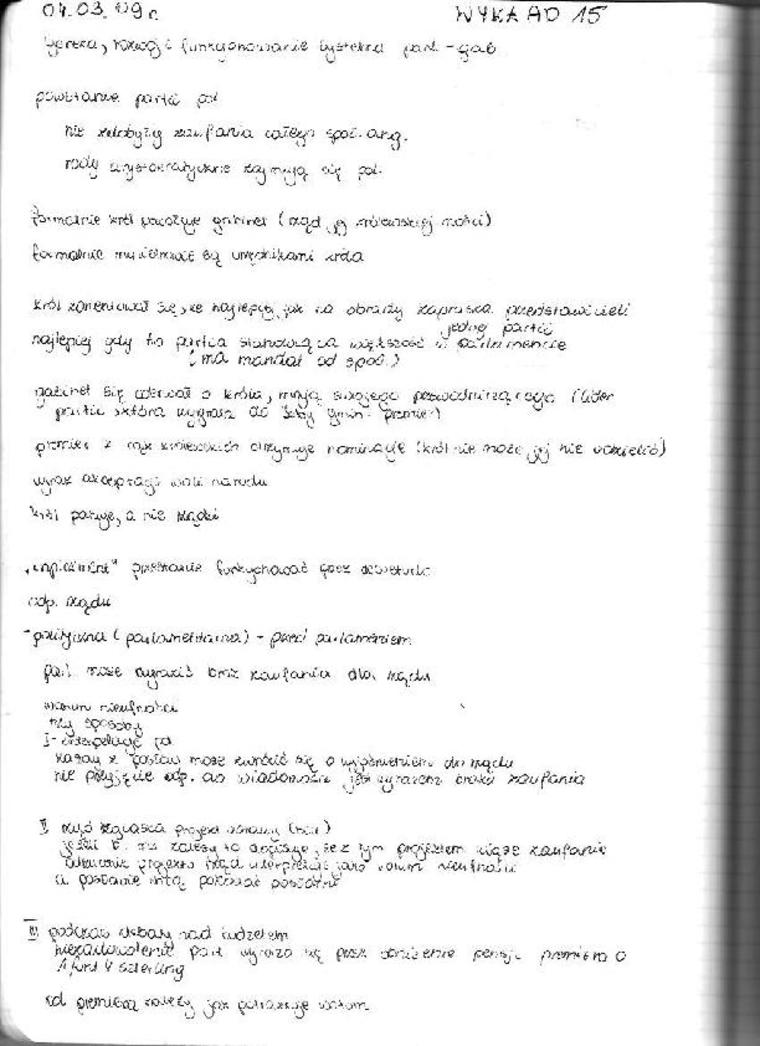 04.03.09r. WYKŁAD 15
Geneza, rozwój i funkcjonowanie systemu parl.-gab
powstanie partii pol
nie zdobyły zaufania całego społ. ang.
rody arystokratyczne zajmują się pol.
formalnie król powołuje gabinet (rząd jej królewskiej mości)
formalnie ministrowie są urzędnikami króla
król zorientował się, że najlepiej jak na obrady zaprasza przedstawicieli
jednej partii
najlepiej gdy to partia stanowiąca większość w parlamencie
(ma mandat od społ.)
gabinet się oderwał o króla, mają swojego przewodniczącego (lider
partii która wygrała do Izby Gmin - premier)
premier z rąk królewskich otrzymuje nominację (król nie może jej nie udzielić)
wyraz akceptacji woli narodu
król panuje, a nie rządzi
przestanie funkcjonować
odp. rządu
- polityczna (parlamentarna) - przed parlamentem
parl. może wyrazić brak zaufania dla rządu
wotum nieufności
trzy sposoby
I - interpelacje
każdy z posłów może zwrócić się o wyjaśnieniem do rządu
nie przyjęcie odp. do wiadomości jest wyrazem braku zaufania
II rząd zgłasza projekt ustawy
jeśli b. mu zależy to dopisuje, że z tym projektem wiąże zaufanie
projektu rząd interpretuje jako wotum nieufności
III podczas debaty nad budżetem
niezadowolenie parl wyraża się przez obniżenie pensji premiera o
1 funt sterling
od premiera zależy jak potraktuje wotum